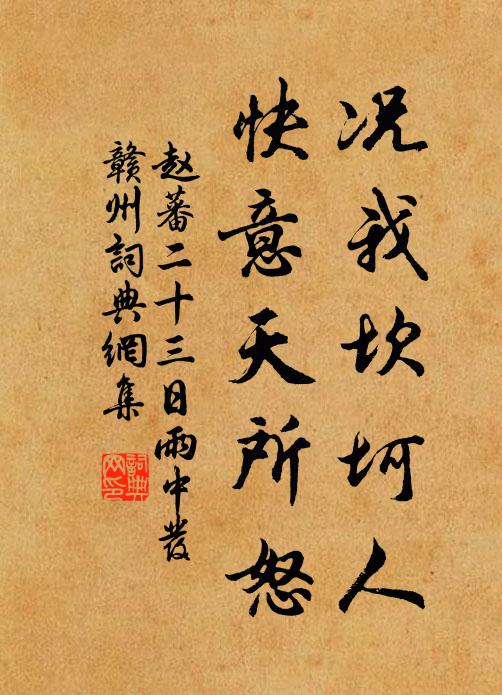 况我坎坷人
快意天所怒
赵蕃二十三日雨中发
赣州詞典網集
詞典
网印